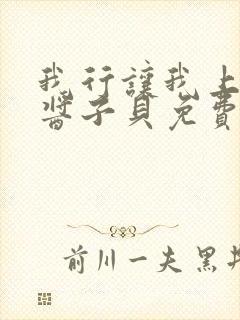 我行讓我上
醬子貝免費
前川一夫黑